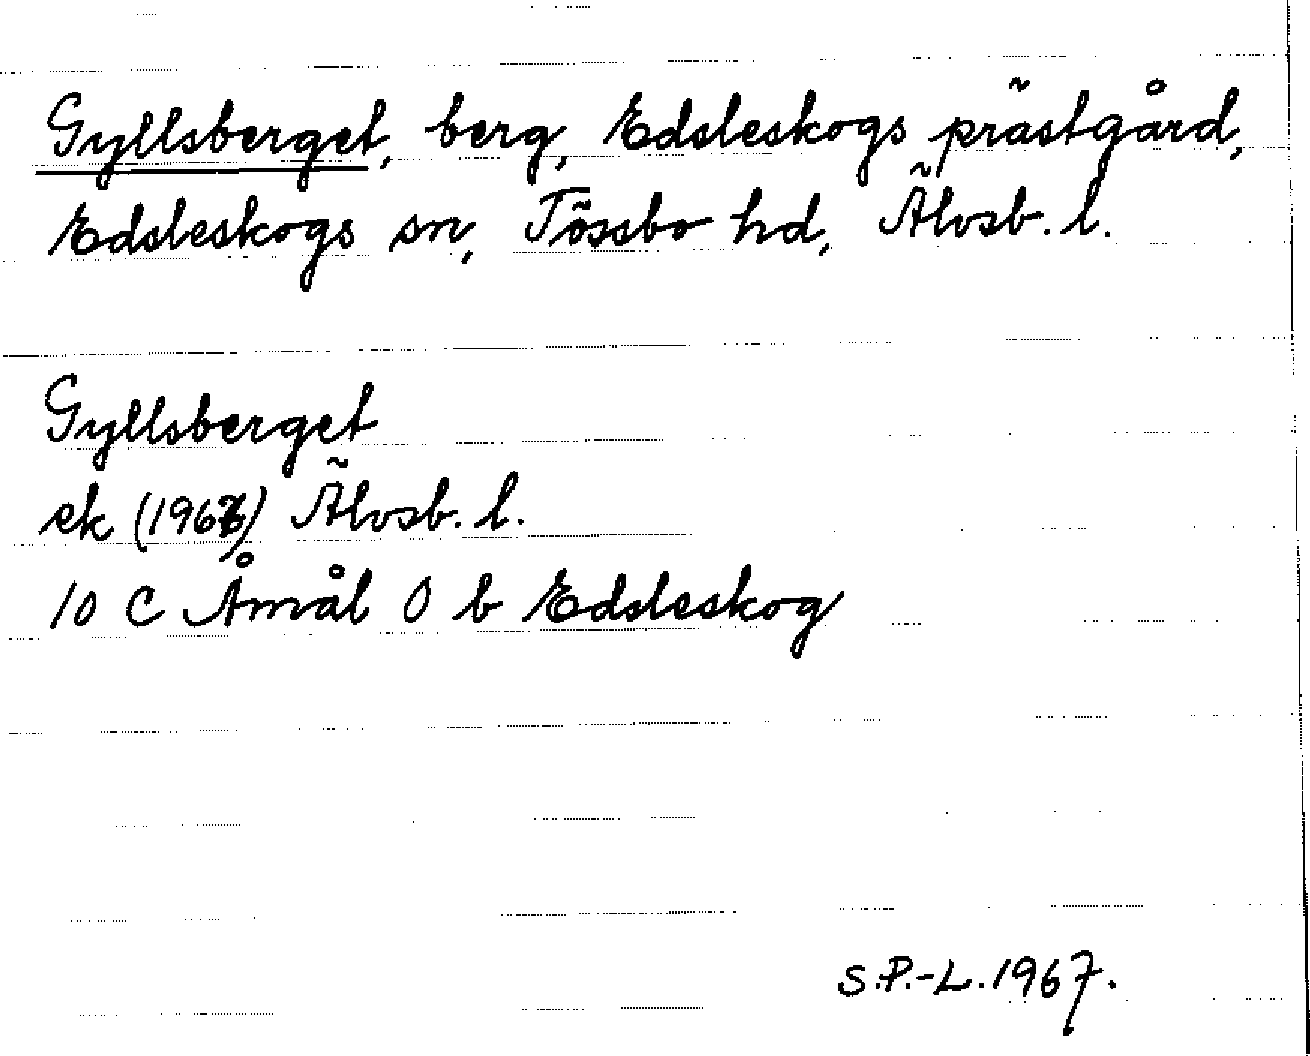 Gyllsberget, berg, Edsleskogs prästgård,
Edsleskogs sn, Tössbo hd, Älvsb. l.
Gyllsberget
ek (1967) Älvsb. l.
10 C Åmål 0 b Edsleskog
S.P.-L. 1967.